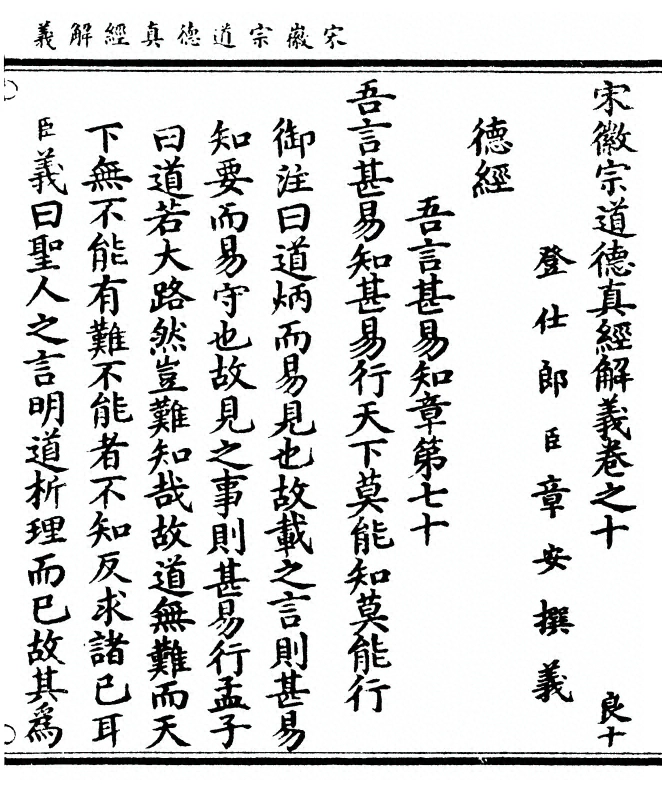 宋徽宗道德真經解義
宋徽宗道德真經解義卷之十
良十
登仕郎臣章安撰義
德經
吾言甚易知章第七十
吾言甚易知甚易行天下莫能知莫能行
御注曰道炳而易見也故載之言則甚易
知要而易守也故見之事則甚易行孟子
曰道若大路然豈難知哉故道無難而天
下無不能有難不能者不知反求諸己耳
臣義曰聖人之言明道析理而已故其爲